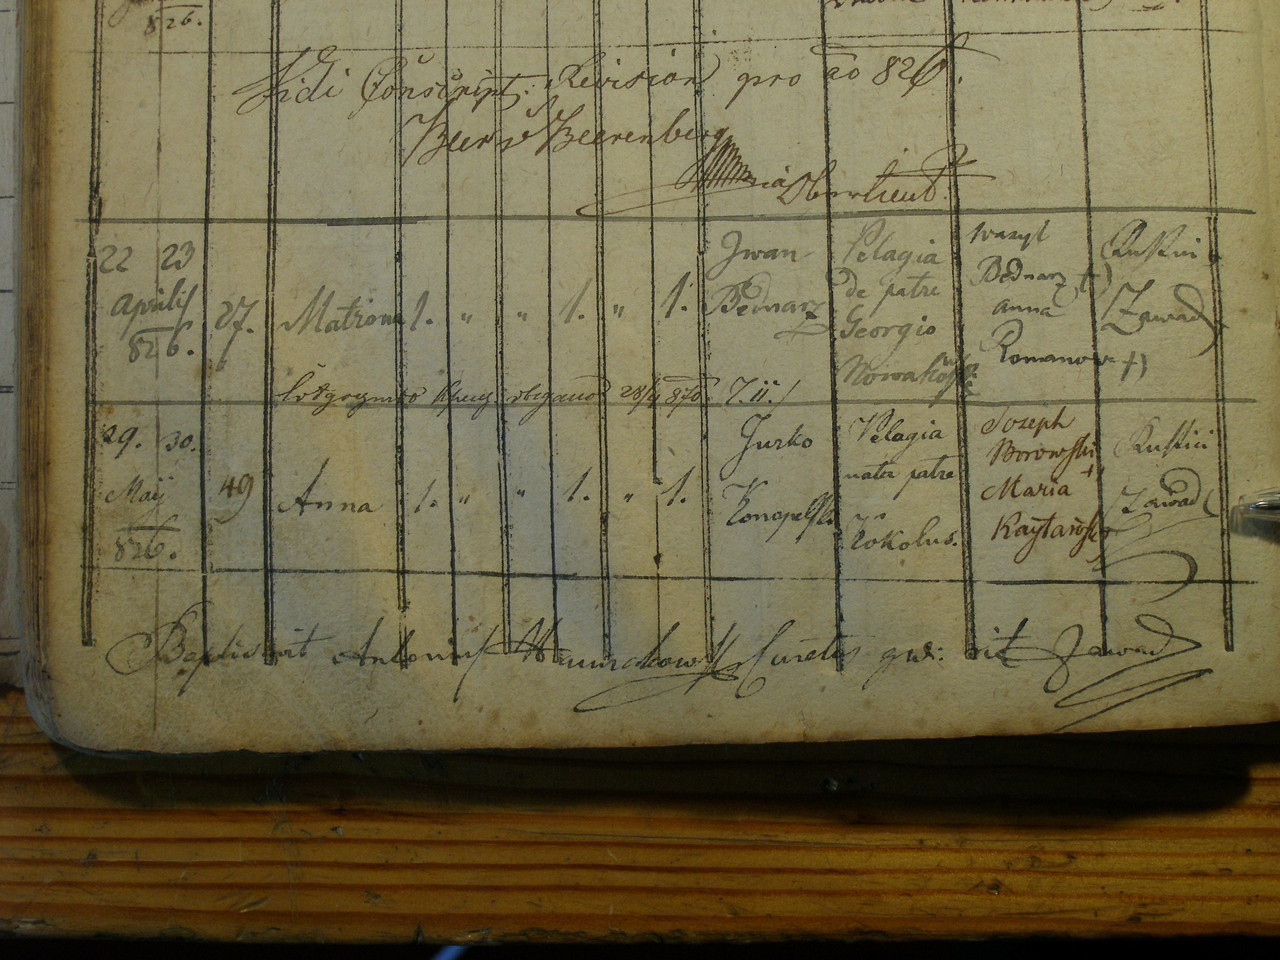 826.
Vidi Conscript. Revision pro ao 826.
Beer v Beerenberg
Oberlieut.
22 23 Aprilis 826. 27. Matrona 1. " " 1. " 1. Iwan Bednarz Pelagia de patre Georgio Nowakowski Wasyl Bednarz +) Anna Romanow +) Rustici Zawad
28/4 870
29. 30. Maij 826. 49 Anna 1. " " 1. " 1. Jurko Konopelski Pelagia nata patre Kokolus. Joseph Borowski + Maria Rustici Zawad
Baptisavit Antonius Curatus gr: rit Zawad